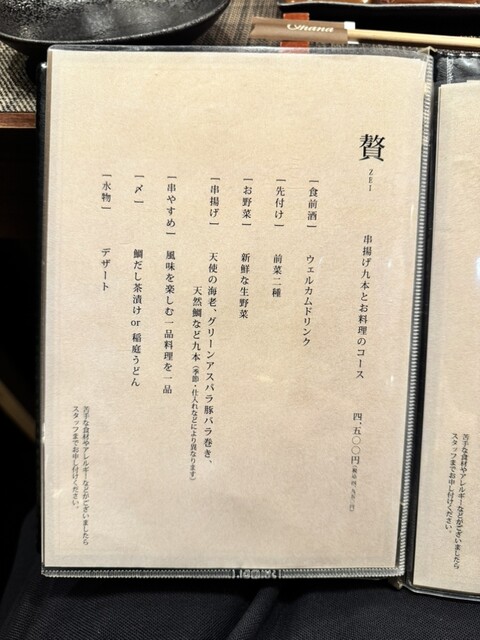 Ohana
贅
ZEI
串揚げ九本とお料理のコース
四、五〇〇円(税込四、九五〇円)
【食前酒】 ウェルカムドリンク
【先付け】 前菜二種
【お野菜】 新鮮な生野菜
【串揚げ】 天使の海老、グリーンアスパラ豚バラ巻き、
天然鯛など九本(季節・仕入れなどにより異なります)
【串やすめ】 風味を楽しむ一品料理を一品
【〆】 鯛だし茶漬け or 稲庭うどん
【水物】 デザート
苦手な食材やアレルギーなどがございましたら
スタッフまでお申し付けください。
苦手な食材やアレルギーなどがございましたら
スタッフまでお申し付けください。